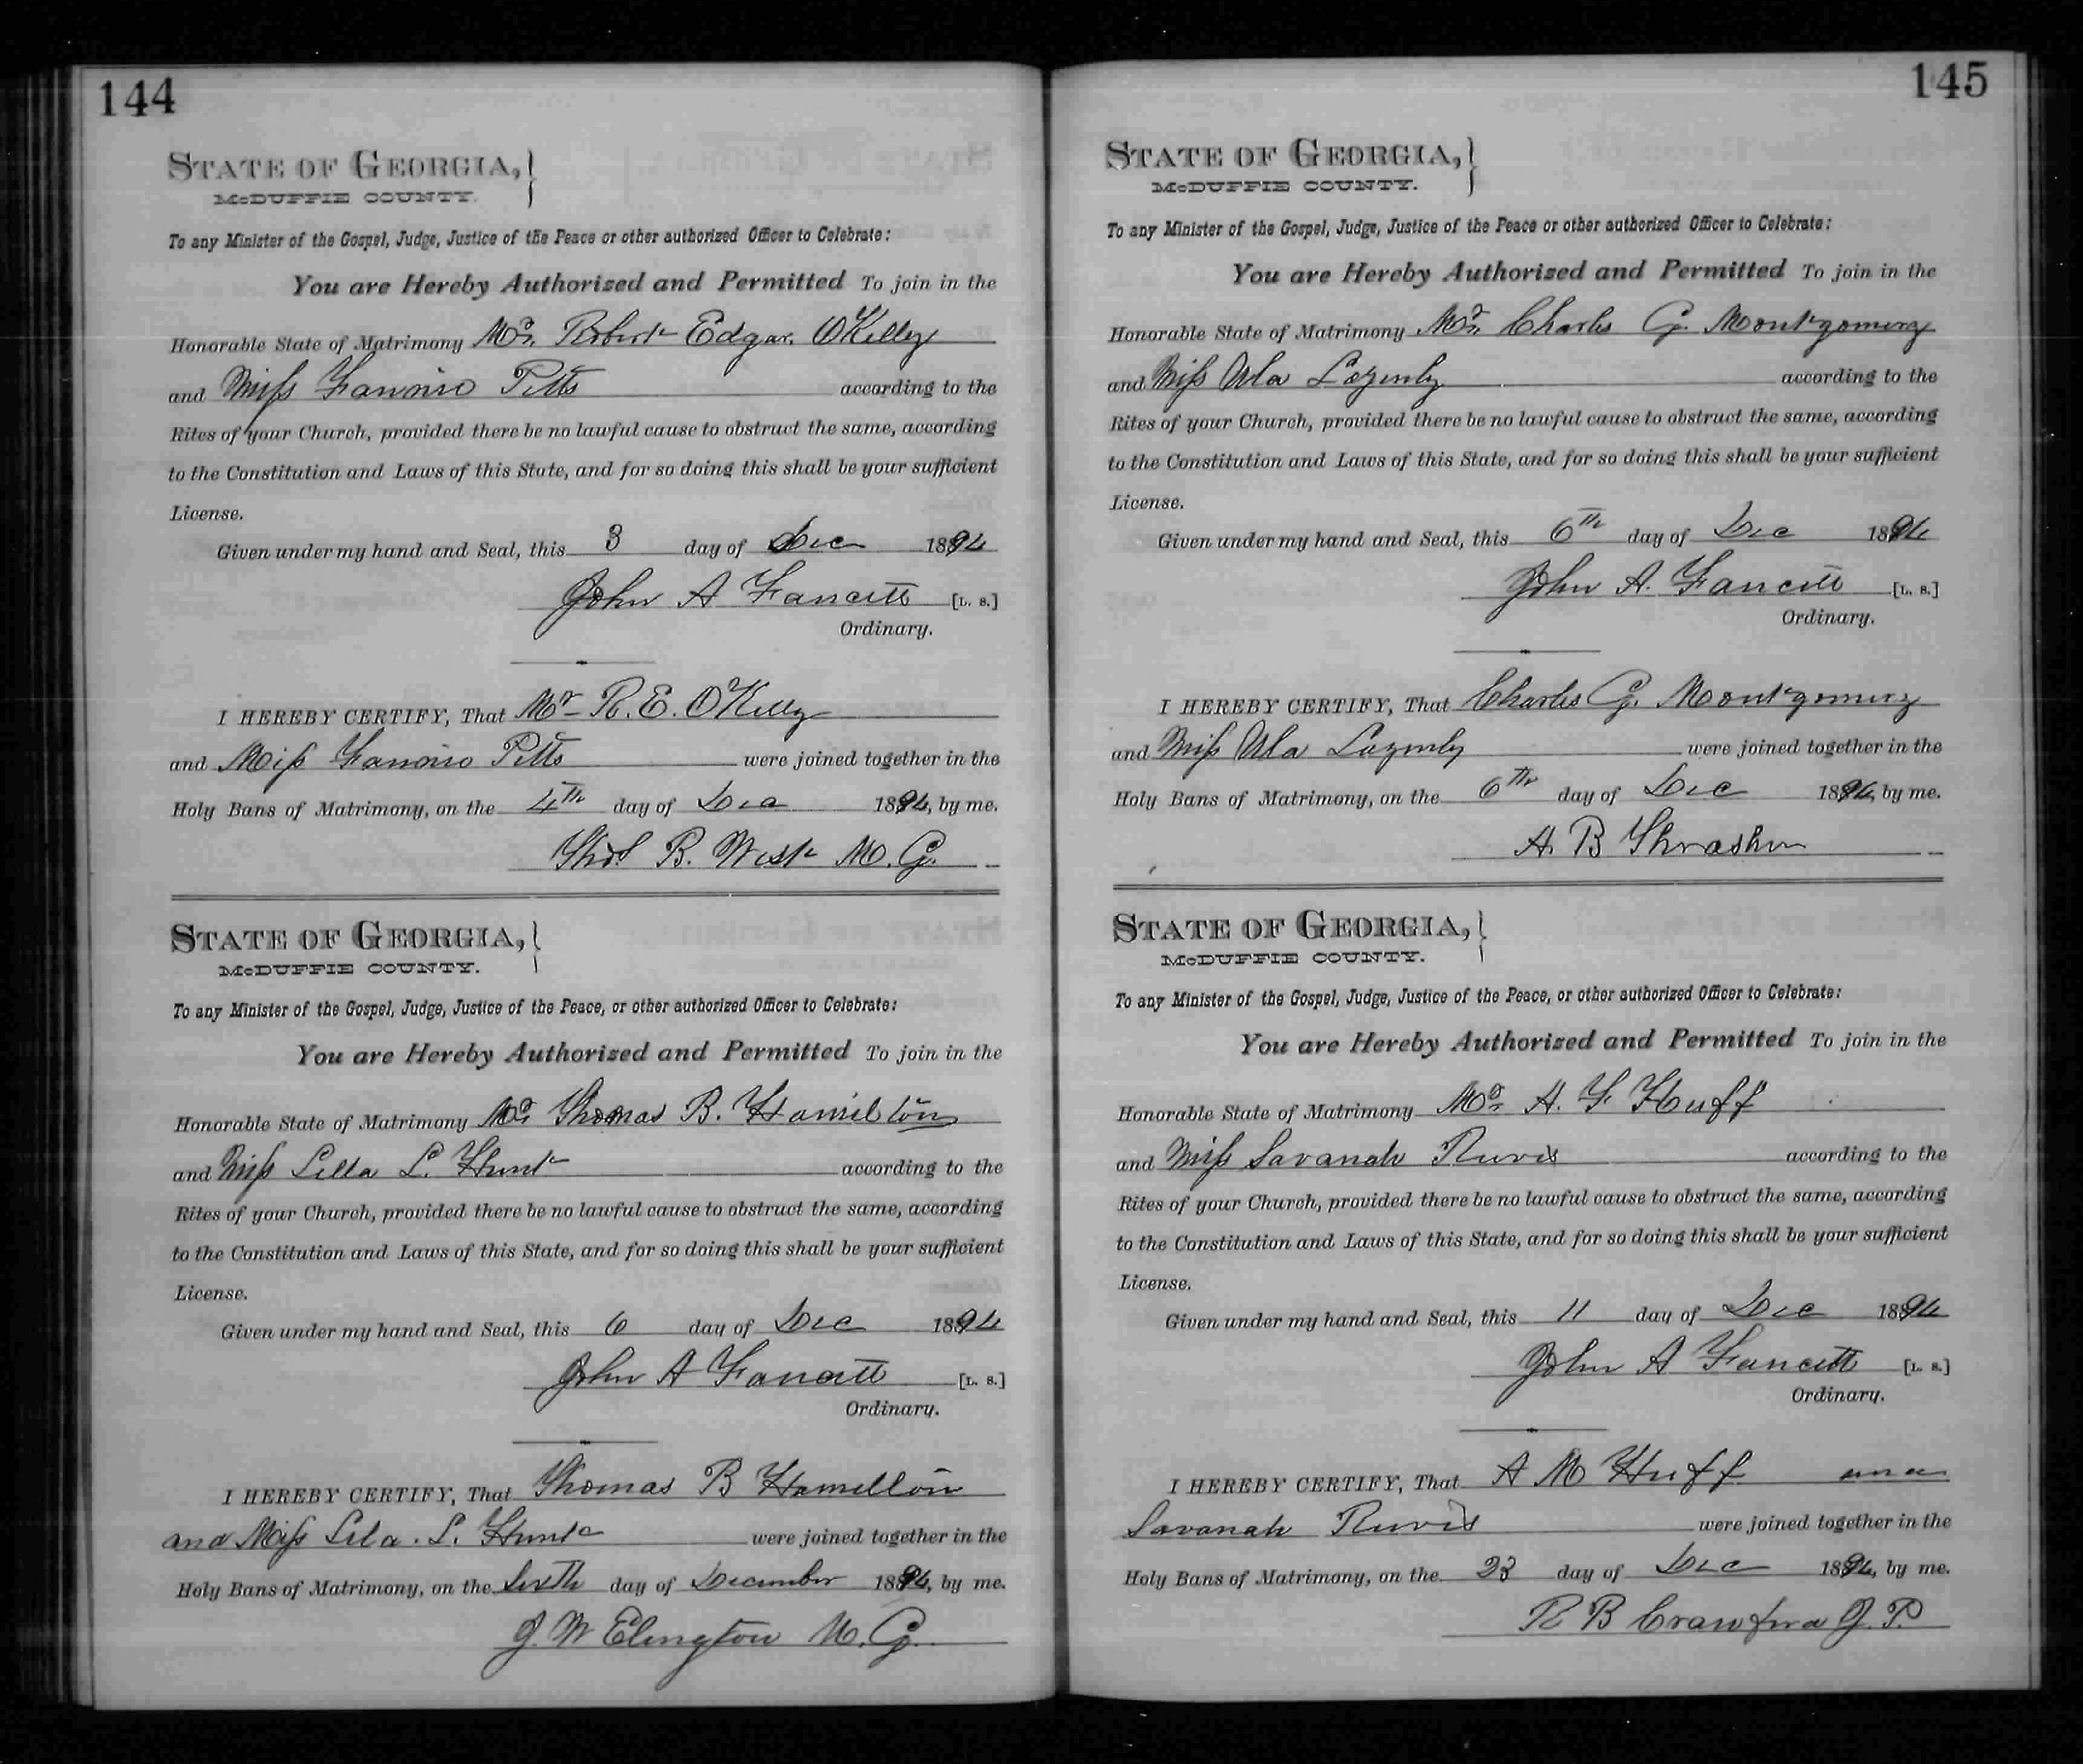 144
STATE OF GEORGIA,
McDUFFIE COUNTY.
To any Minister of the Gospel, Judge, Justice of the Peace or other authorized Officer to Celebrate:
You are Hereby Authorized and Permitted To join in the
Honorable State of Matrimony Mr. Robert Edgar OKelly
and Miss Fannie Pitts according to the
Rites of your Church, provided there be no lawful cause to obstruct the same, according
to the Constitution and Laws of this State, and for so doing this shall be your sufficient
License.
Given under my hand and Seal, this 3 day of Dec 1894
John A [L. S.]
Ordinary.
I HEREBY CERTIFY, That Mr R. E. O'Kelly
and Miss Fannie Pitts were joined together in the
Holy Bans of Matrimony, on the 4th day of Dec 1894, by me.
B. West M. G.
STATE OF GEORGIA,
McDUFFIE COUNTY.
To any Minister of the Gospel, Judge, Justice of the Peace, or other authorized Officer to Celebrate:
You are Hereby Authorized and Permitted To join in the
Honorable State of Matrimony Mr Thomas B. Hamilton
and Miss Lilla L. Hunt according to the
Rites of your Church, provided there be no lawful cause to obstruct the same, according
to the Constitution and Laws of this State, and for so doing this shall be your sufficient
License.
Given under my hand and Seal, this 6 day of Dec 1894
John A [L. S.]
Ordinary.
I HEREBY CERTIFY, That Thomas B Hamilton
and Miss Lila. L. Hunt were joined together in the
Holy Bans of Matrimony, on the Sixth day of December 1894, by me.
J. W Elington M. G.
145
STATE OF GEORGIA,
McDUFFIE COUNTY.
To any Minister of the Gospel, Judge, Justice of the Peace or other authorized Officer to Celebrate:
You are Hereby Authorized and Permitted To join in the
Honorable State of Matrimony Mr. Charles G. Montgomery
and Miss Ula Lazenby according to the
Rites of your Church, provided there be no lawful cause to obstruct the same, according
to the Constitution and Laws of this State, and for so doing this shall be your sufficient
License.
Given under my hand and Seal, this 6th day of Dec 1894
John A. [L. S.]
Ordinary.
I HEREBY CERTIFY, That Charles G. Montgomery
and Miss Ula Lazenby were joined together in the
Holy Bans of Matrimony, on the 6th day of Dec 1894, by me.
A. B Thrasher
STATE OF GEORGIA,
McDUFFIE COUNTY.
To any Minister of the Gospel, Judge, Justice of the Peace, or other authorized Officer to Celebrate:
You are Hereby Authorized and Permitted To join in the
Honorable State of Matrimony Mr. A. F Huff
and Miss Savanah Reevis according to the
Rites of your Church, provided there be no lawful cause to obstruct the same, according
to the Constitution and Laws of this State, and for so doing this shall be your sufficient
License.
Given under my hand and Seal, this 11 day of Dec 1894
John A [L. S.]
Ordinary.
I HEREBY CERTIFY, That A M Huff and
Savanah Reevis were joined together in the
Holy Bans of Matrimony, on the 23 day of Dec 1894, by me.
R B Crawford J. P.